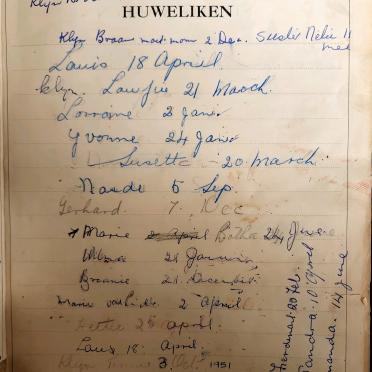 HUWELIKEN
Klyn Braam 2 Des. Susie Nelie 11
Louis 18 April
klyn Loufie 21 March
Lorraine 2 Janie
Yvonne 24 Janie
Susette 20 March
Naude 5 Sep.
Gerhard 7. Dec
Marie 2 April Botha 24 June
21
Braanie 21 December
Marie 2 April
Hettie 25 april
Laus 18 April
Klyn 3 Oct. 1951
Ferdinand 20 Feb.
Sandra 10 April
manda 14 June